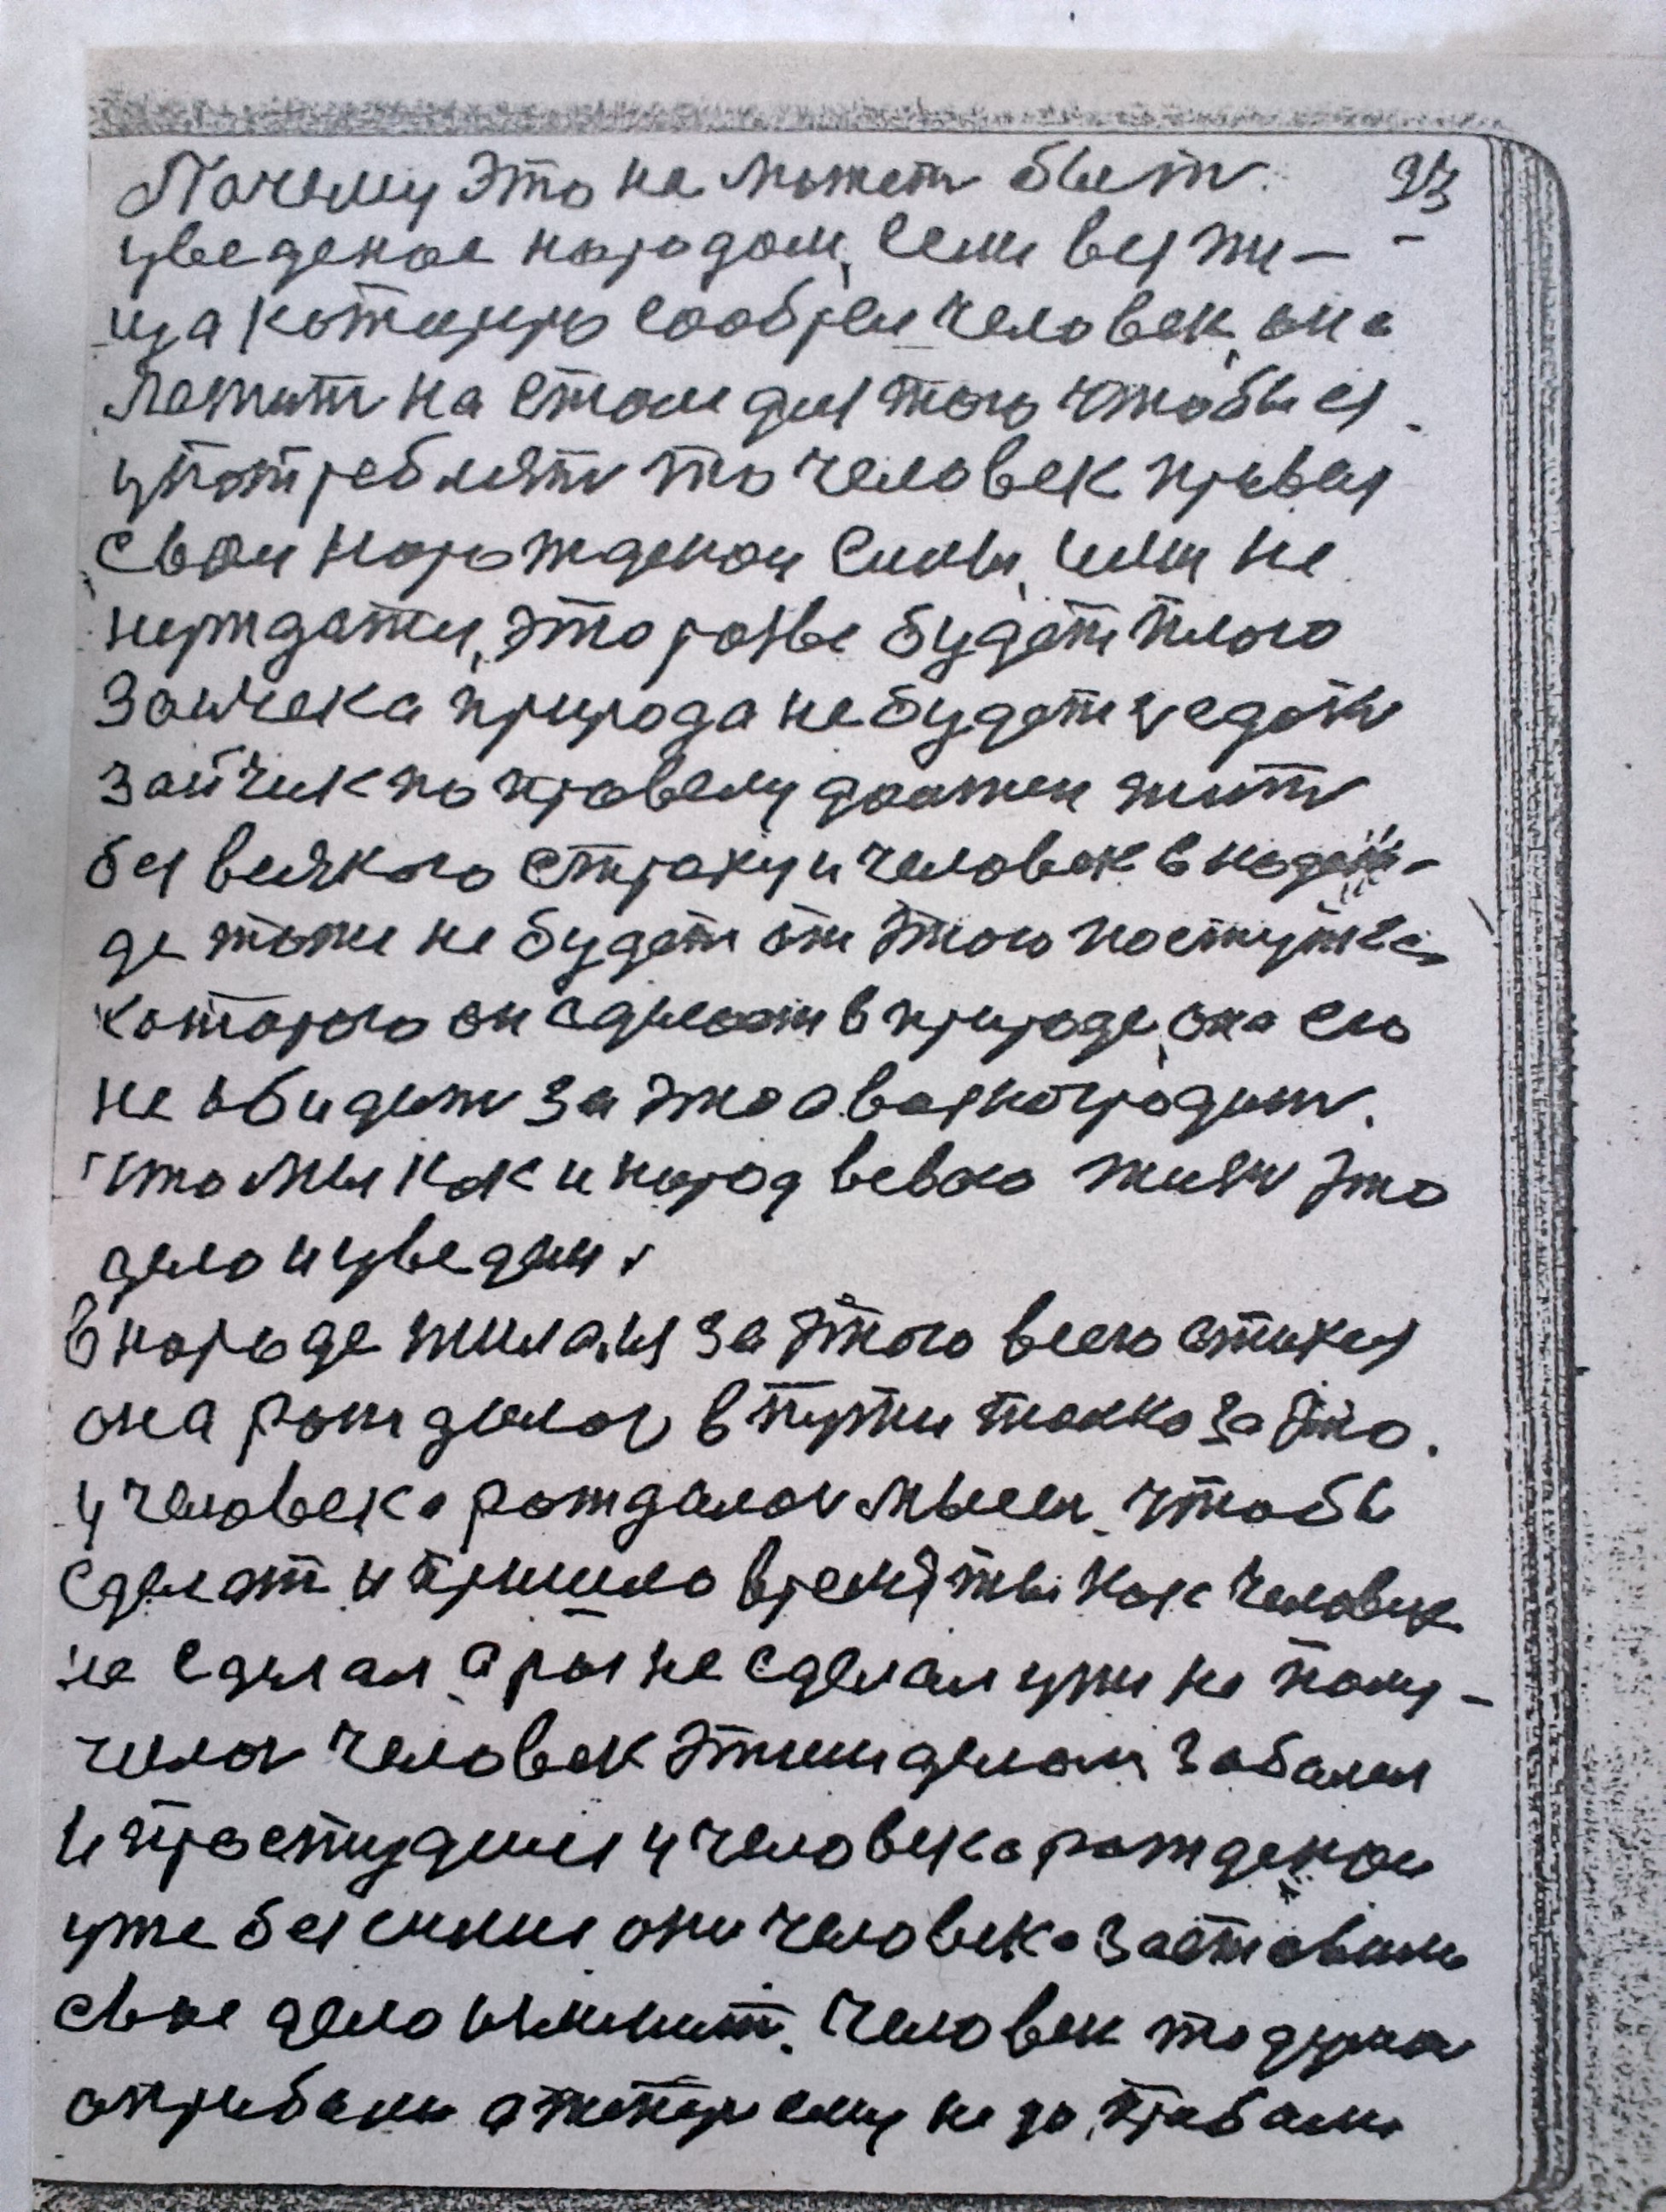 Почему это не может быт. 93
уведеное народом, если вся пи-
ща которую собрал человек, она
лежит на столе для того чтобы ея
употреблять то человек
свои нарожденои силы, или не
это разве будет плохо
Зайчека природа не будет седать
зайчик по правелу должен жить
без всякого страху и человек в надеж-
де тоже не будет от этого поступка
которого он сделает в природе, она его
не обидит за это а вазноградит.
что мы как и народ всвою жизнь это
дело и уведем.
В народе жила за этого всего стихея
она рождалась в пути толко за это.
у человека рождалась мысль, чтобы
сделат и пришло время ты как человек
не сделал, а раз не сделал уже не полу-
чилось человек этим делом заболел
и простудился у человека рожденои
уже без силия они человека заставили
свое дело изменит. Человек то думал
о прибыли а теперь ему не до прибыли